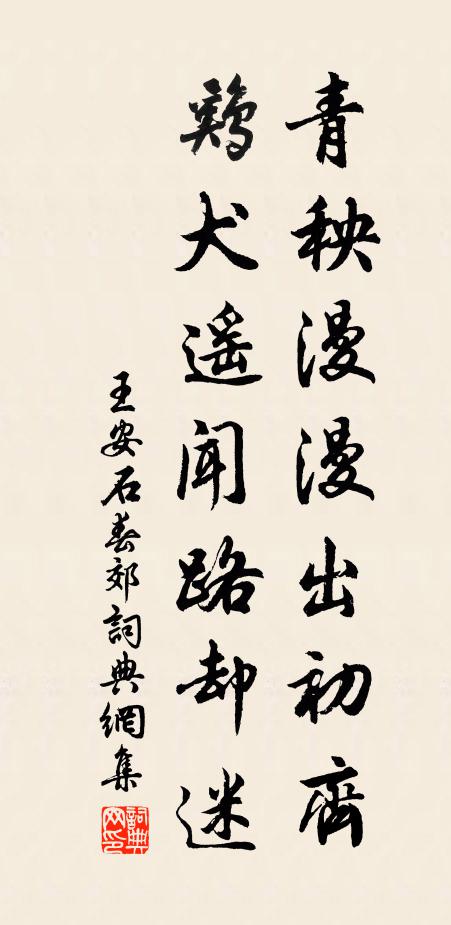 青秧漫漫出初齊
鷄犬遥聞路却迷
王安石春郊詞典網集
詞典网印